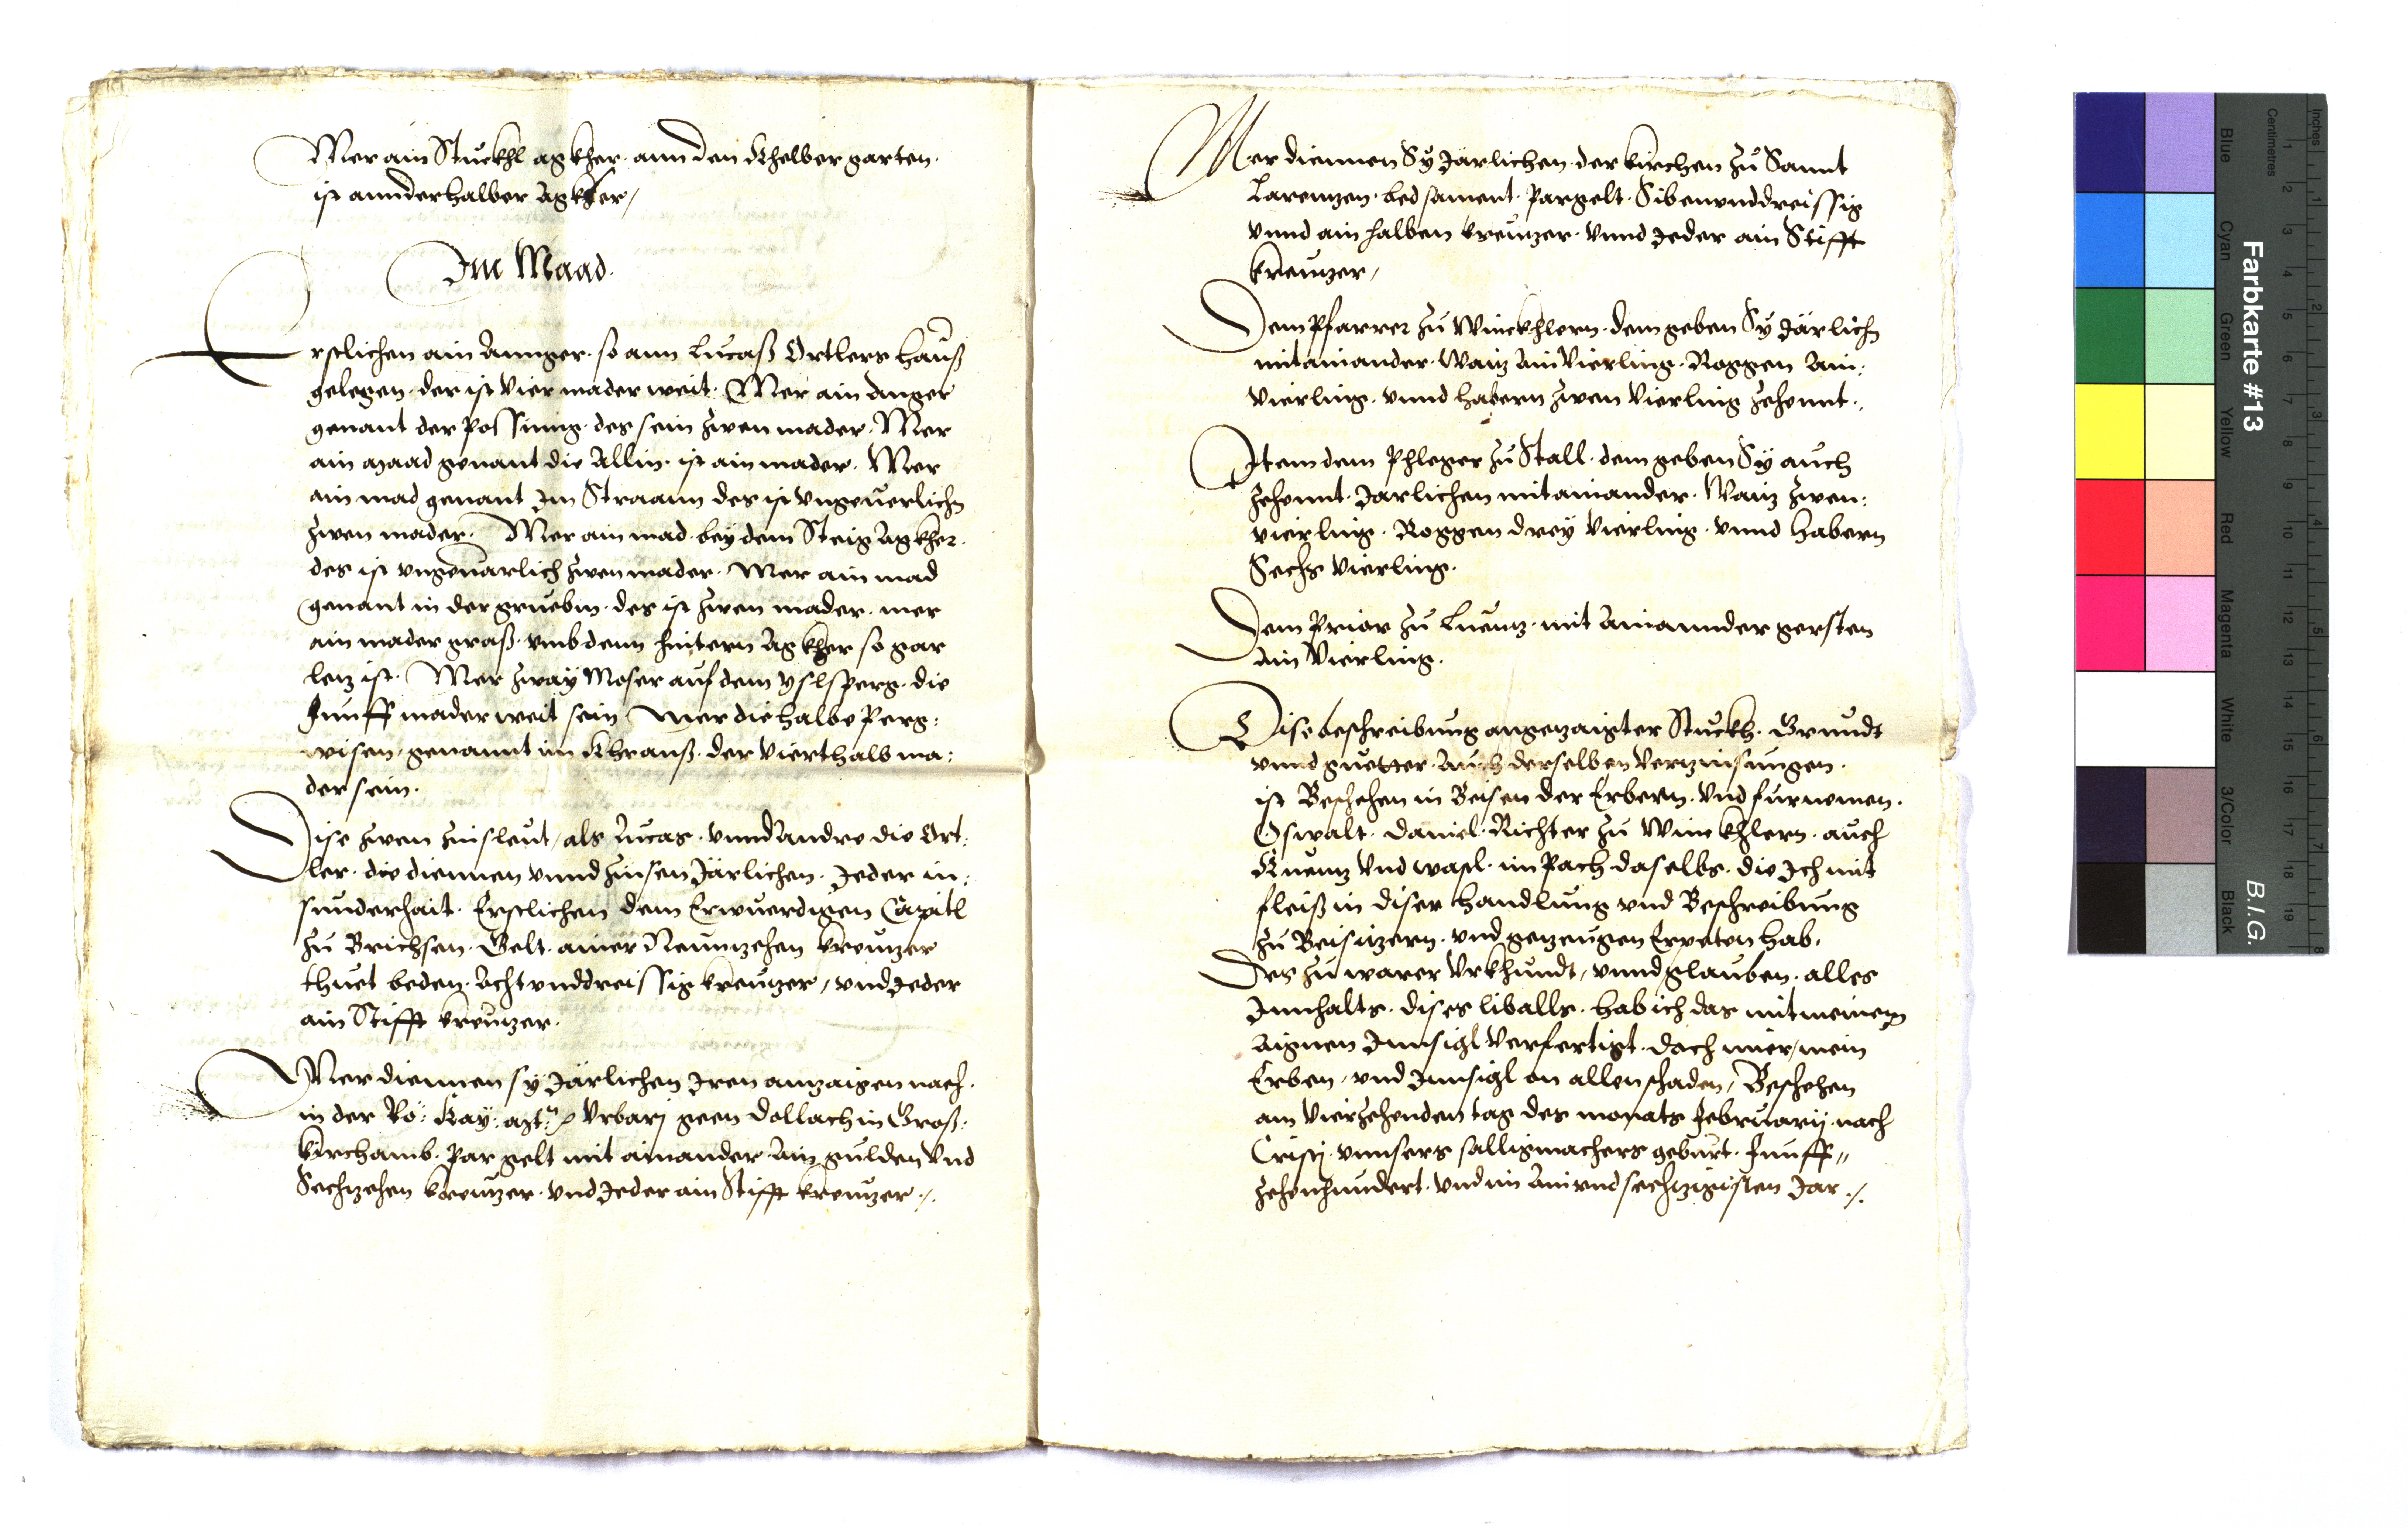 Mer ain Stuckhl agkher. ann den Khelber garten.
ist annderhalber Agkher /
Im Maad.
Erstlichen ain Annger. so ann Lucaß Ortlers hauß
gelegen. der ist Vier mader weit. Mer ain Anger
genant der Possinig. des sein zwen mader. Mer
ain maad genant die Allin. ist ain mader. Mer
ain mad genant Im Straann des ist vngeuerlichn
zwen mader. Mer ain mad bey dem Steig Agkher.
des ist vngeuarlich zwen mader. Mer ain mad
genant in der gruebm. des ist zwen mader. mer
ain mader graß. vmb denn hintern Agkher so gar
letz ist. Mer zway Moser auf dem Yslsperg. die
Funff mader weit sein Mer die halbe Perg:
wisen. genannt im Khrauß. der Vierthalb ma:
der sein.
Dise zwen zinsleut / als Lucas. vnnd Andre die Ort:
ler. die diennen vnnd zinsen Järlichen. Jeder in:
sunderhait. Erstlichen dem Erwuerdigen Capitl
zu Brichsen. Gelt. ainer Neunzehen kreutzer
thuet beden. Acht vnddreissig kreutzer / vnd Jeder
ain Stifft kreutzer.
Mer diennen sy Järlichen Iren anzaigen nach.
in der Rö: Kay: Vrbarj geen Dollach in Groß:
kirchamb. Par gelt mit ainander Ain gulden Vnd
Sechzehen kreutzer. vnd Jeder ain Stifft kreutzer ./.
Mer diennen Sy Järlichen. der kirchen zu Sannt
Larentzen. bed sament. Pargelt. Sibenvnddreissig
vnnd ain halben kreutzer. vnnd Jeder ain Stifft
kreutzer /
Dem Pfarrer zu Winckhlern. dem geben Sy Järlichn
mitainander. Waitz Ain Vierling. Roggen Ain:
Vierling. vnnd habern zwen Vierling zehennt ./.
Item dem Phleger zu Stall. dem geben Sy auch
zehennt. Jarlichen mitainander. Waitz zwen:
vierling. Roggen drey Vierling. vnnd habern
Sechs Vierling.
Dem Prior zu Luentz. mit Ainannder gersten
Ain Vierling.
Dise beschreibung angezaigter Stuckh. Grundt
vnnd guetter. Auch derselben Verzinsungen.
ist Beschehen in Beisen der Erbern. Vnd furnemen.
Oswalt. Daniel. Richter zu Winckhlern. auch
Kuentz Vnd Wastl. im Pach daselbs. die Ich mit
fleiß in diser handlung vnd Beschreibung
zu Beisitzern. vnd getzeugen Erpeten hab.
Des zu warer Vrkhundt / vnnd glauben. alles
Innhalts. dises liballs. hab ich das mit meinem
Aignen Innsigl Verfertigt. doch mier / mein
Erben / vnd Innsigl on allen schaden / Beschehen
am Vierzehenden tag des monats Februarij. nach
Cristj. vnnsers salligmachers geburt. Funff„
zehenhundert. vnd im Ainvndsechtzigisten Jar ./.
Farbkarte #13
B.I.G.
Blue
Cyan
Green
Yellow
Red
Magenta
White
3/Color
Black
Centimetres
Inches
1 2 3 4 5 6 7 8 9 10 11 12 13 14 15 16 17 18 19
1 2 3 4 5 6 7 8